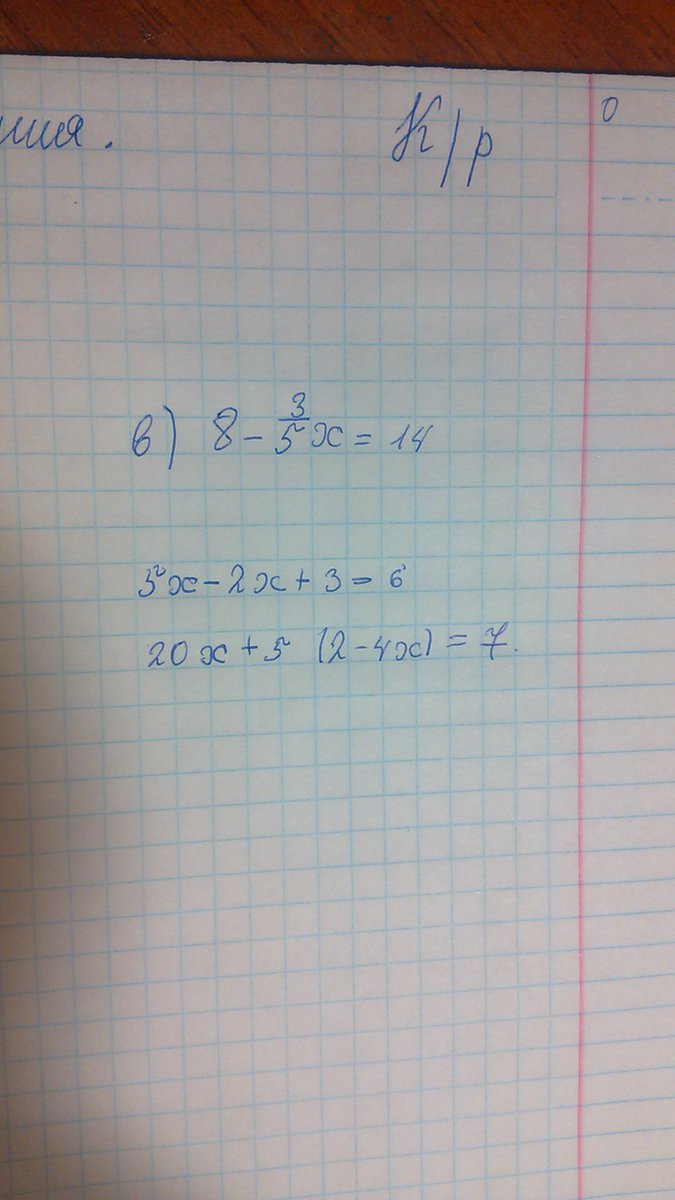 К/р
в) 8 - 3/5 x = 14
5x - 2x + 3 = 6
20x + 5 (2 - 4x) = 7.